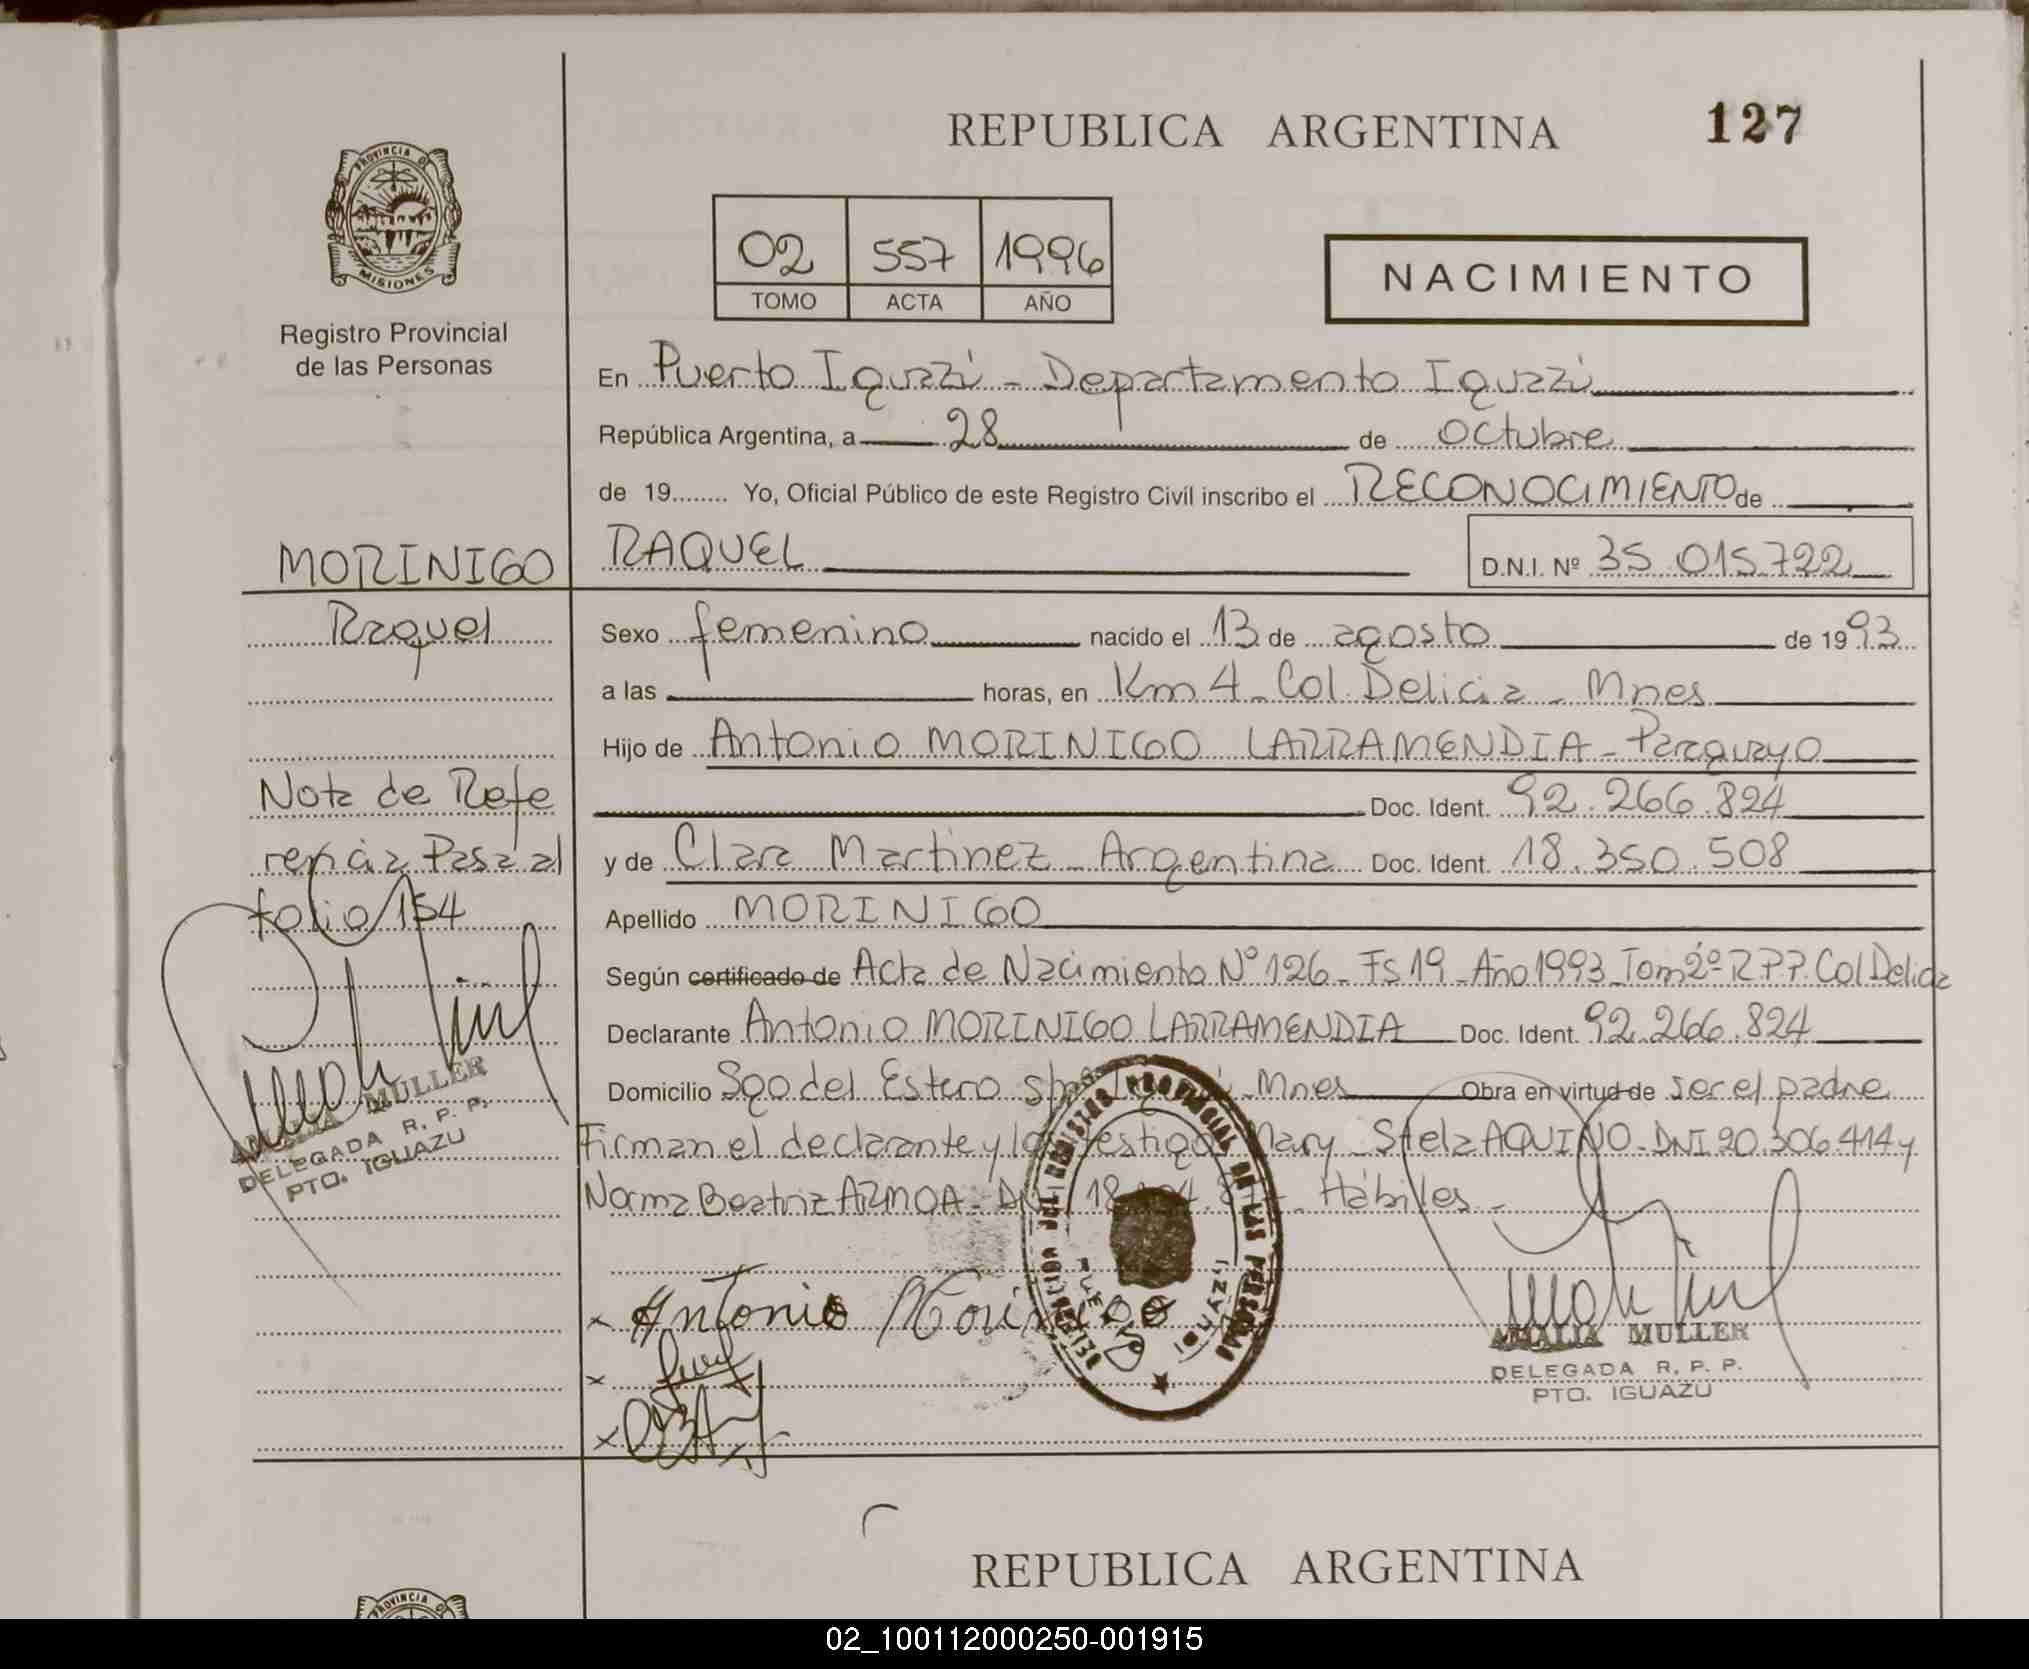 REPUBLICA ARGENTINA
127
PROVINCIA DE
MISIONES
Registro Provincial
de las Personas
02 557 1996
TOMO ACTA AÑO
NACIMIENTO
En Puerto Iguazú - Departamento Iguazú
República Argentina, a 28 de octubre
de 19........ Yo, Oficial Público de este Registro Civíl inscribo el RECONOCIMIENTO de
MORINIGO
RAQUEL
D.N.I. Nº 35.015.722
Raquel
Sexo femenino nacido el 13 de agosto de 1993
a las horas, en Km 4 - Col. Delicia - Mnes
Hijo de Antonio MORINIGO LARRAMENDIA - Paraguayo
Doc. Ident. 92.266.824
Nota de Refe
rencia Pasa al
folio 154
y de Clara Martinez - Argentina Doc. Ident. 18.350.508
Apellido MORINIGO
Según certificado de Acta de Nacimiento Nº 126 - Fs 19 - Año 1993 Tom 2º R.P.P. Col Delicia
Declarante Antonio MORINIGO LARRAMENDIA Doc. Ident. 92.266.824
Domicilio Sgo del Estero Mnes Obra en virtud de ser el padre
Firman el declarante y los testigos Mary Stela AQUINO - DNI 20.306.414 y
Norma Beatriz ARMOA - Hábiles -
AMALIA MULLER
DELEGADA R. P. P.
PTO. IGUAZU
x Antonio Morinigo
x
x
PROVINCIAL DE LAS PERSONAS
AMALIA MULLER
DELEGADA R. P. P.
PTO. IGUAZU
REPUBLICA ARGENTINA
PROVINCIA DE
02_100112000250-001915